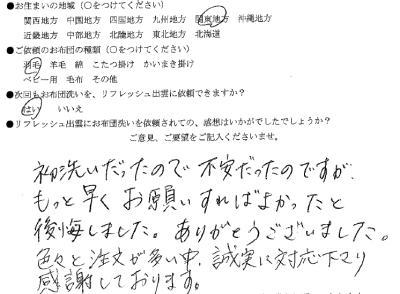 ●お住まいの地域（○をつけてください）
関西地方 中国地方 四国地方 九州地方 関東地方 沖縄地方
近畿地方 中部地方 北陸地方 東北地方 北海道
●ご依頼のお布団の種類（○をつけてください）
羽毛 羊毛 綿 こたつ掛け かいまき掛け
ベビー用 毛布 その他
●次回もお布団洗いを、リフレッシュ出雲に依頼できますか？
はい いいえ
●リフレッシュ出雲にお布団洗いを依頼されての、感想はいかがでしたでしょうか？
ご意見、ご要望をご記入くださいませ。
初洗いだったので不安だったのですが、
もっと早くお願いすればよかったと
後悔しました。ありがとうございました。
色々と注文が多い中、誠実に対応下さり
感謝しております。